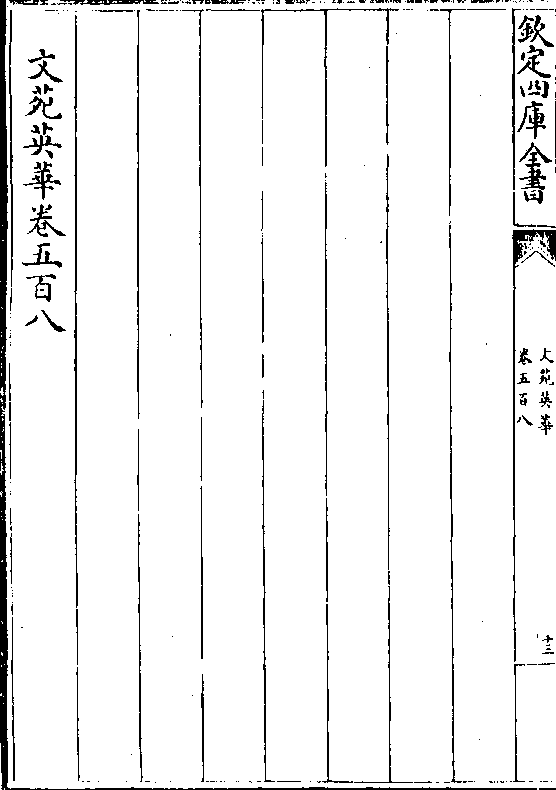 欽定四庫全書
文苑英華
卷五百八
十三
文苑英華卷五百八